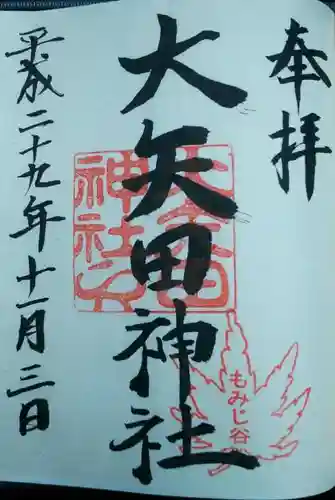 奉拝
大矢田神社
もみじ谷
平成二十九年十一月三日